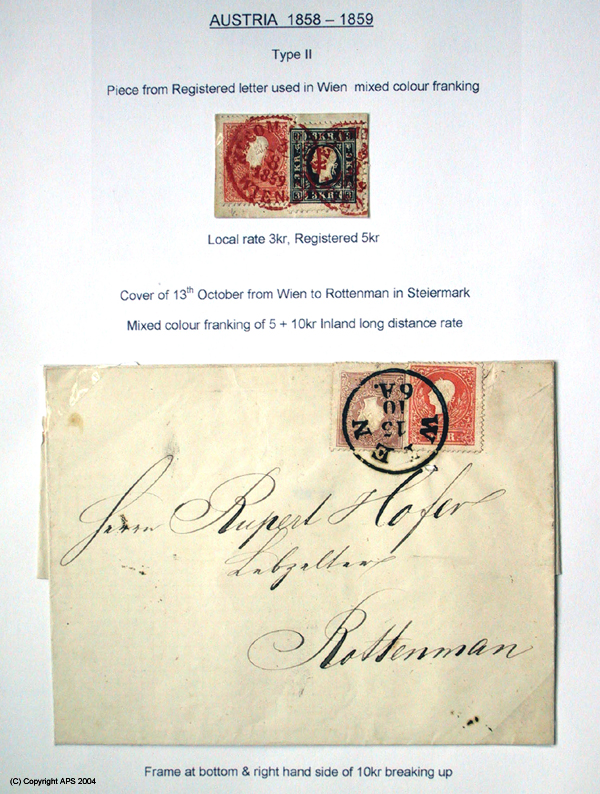 AUSTRIA 1858 – 1859
Type II
Piece from Registered letter used in Wien mixed colour franking
RECOM
1859
WIEN
3 NKR
Local rate 3kr, Registered 5kr
Cover of 13th October from Wien to Rottenman in Steiermark
Mixed colour franking of 5 + 10kr Inland long distance rate
WIEN
13
10
6A.
Herrn Rupert Hofer
Lebzelter
Rottenman
Frame at bottom & right hand side of 10kr breaking up
(C) Copyright APS 2004